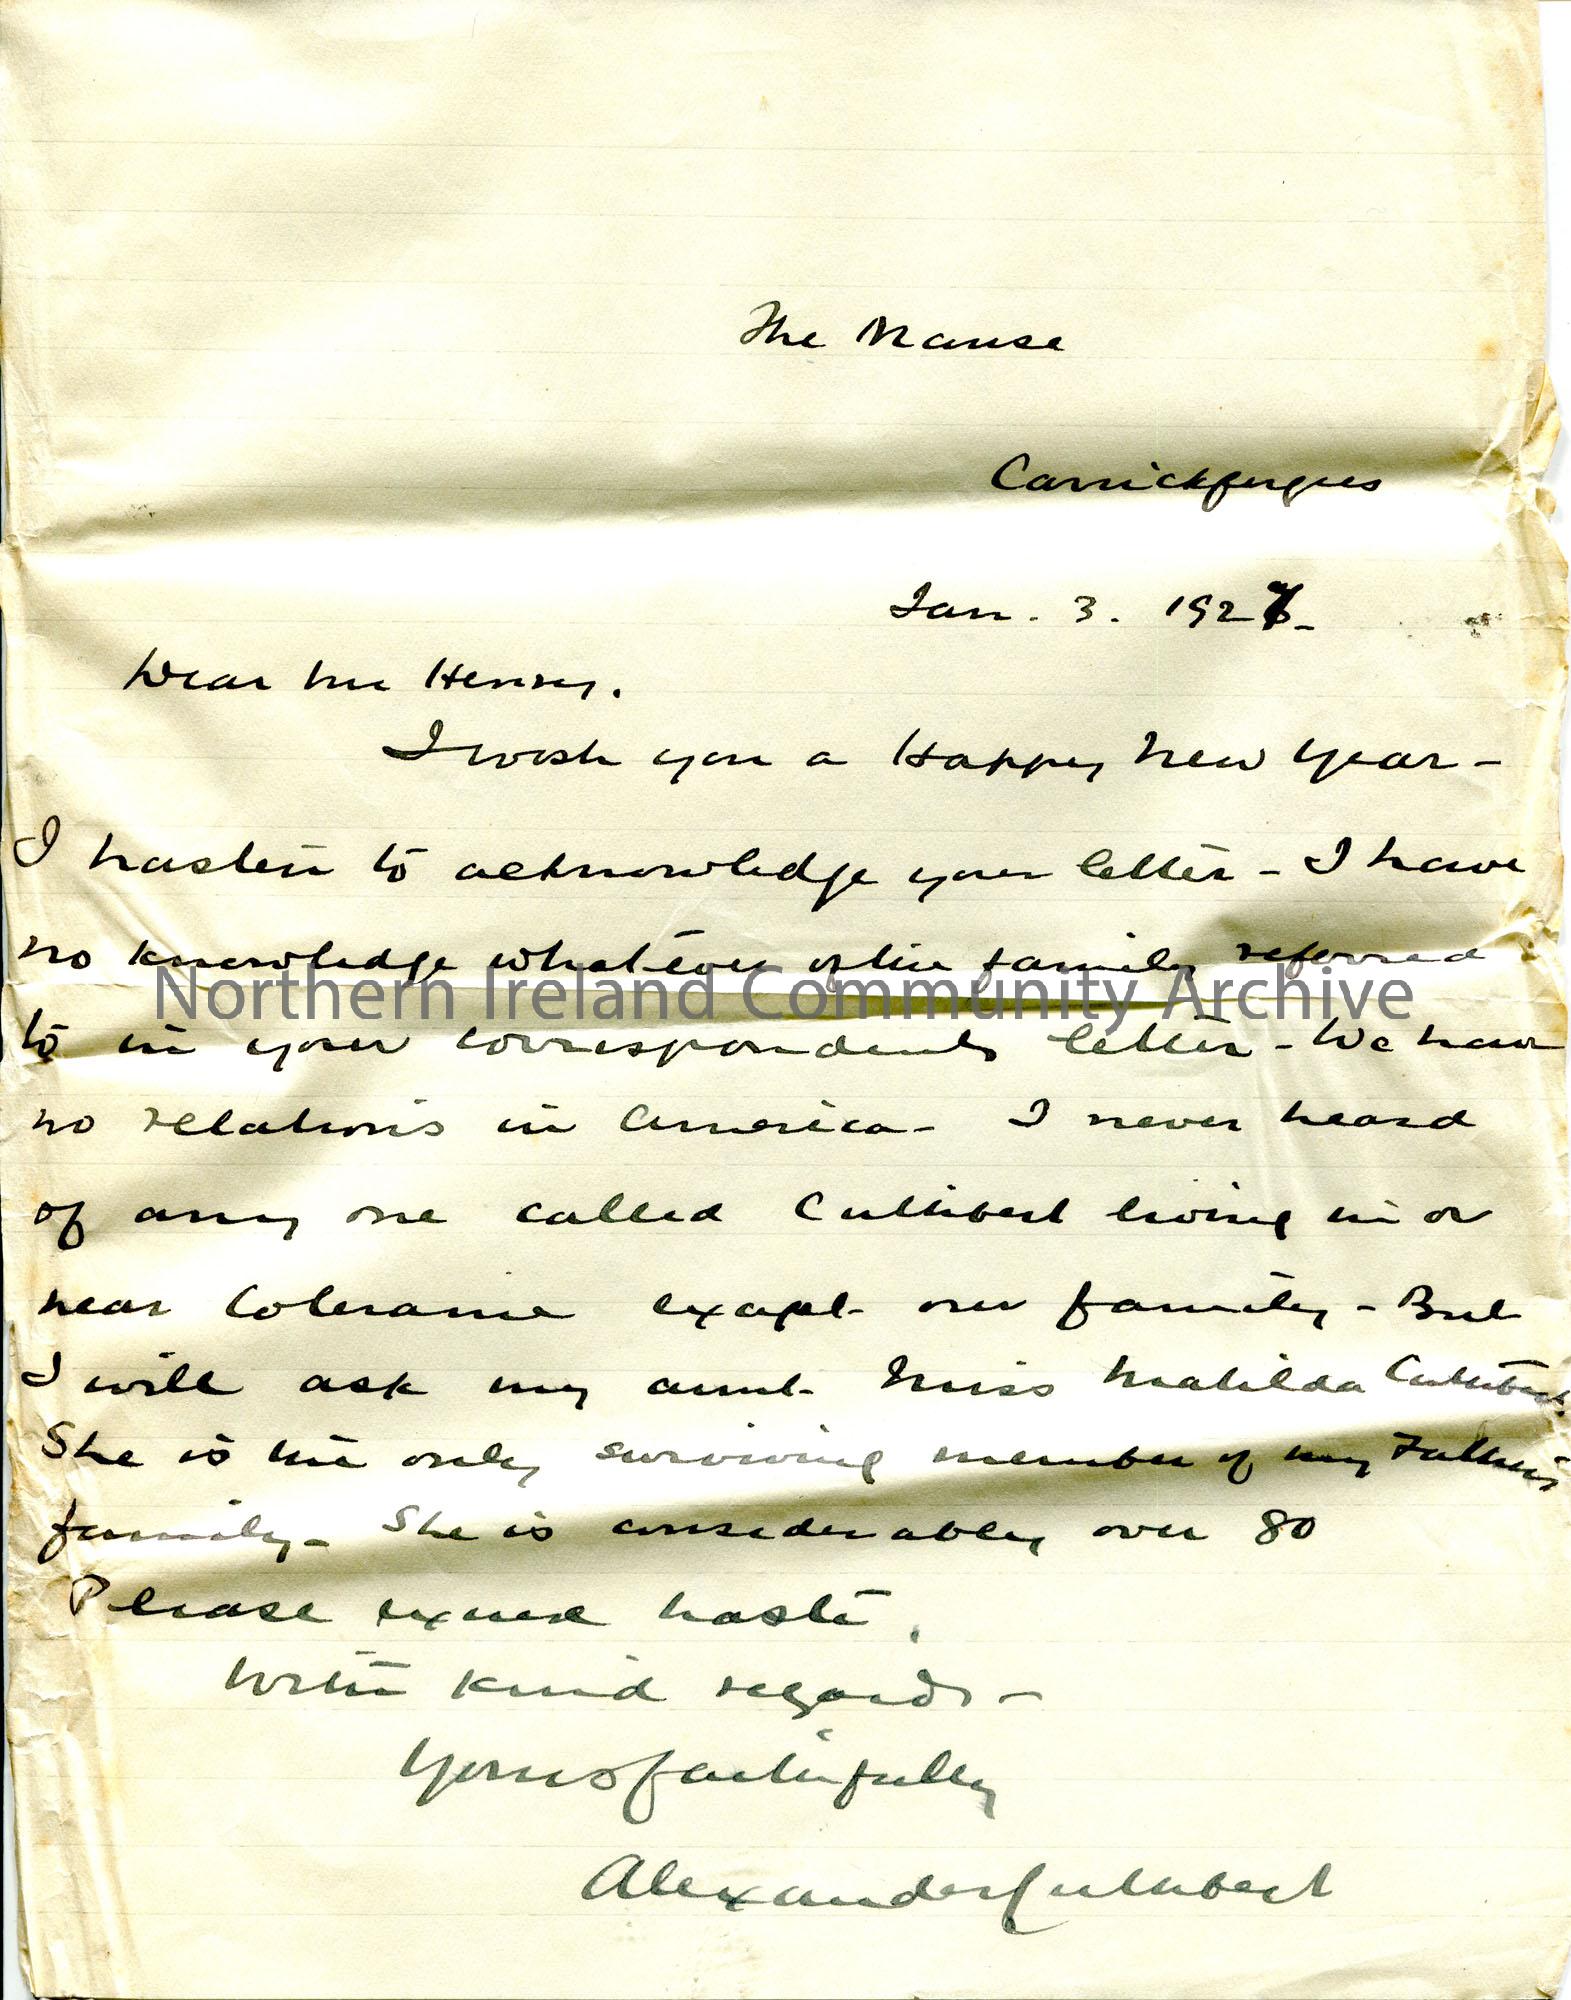 The Manse
Carrickfergus
Jan. 3. 1927-
Dear Mr Henry.
I wish you a Happy New Year -
I hasten to acknowledge your letter - I have
no knowledge whatever of the family referred
Northern Ireland Community Archive
to in your correspondents letter - We have
no relations in America - I never heard
of any one called Cuthbert living in or
near Coleraine except our family - But
I will ask my aunt Miss Matilda Cuthbert.
She is the only surviving member of my Father's
family - She is considerably over 80
Please excuse haste.
With kind regards -
Yours faithfully
Alexander Cuthbert